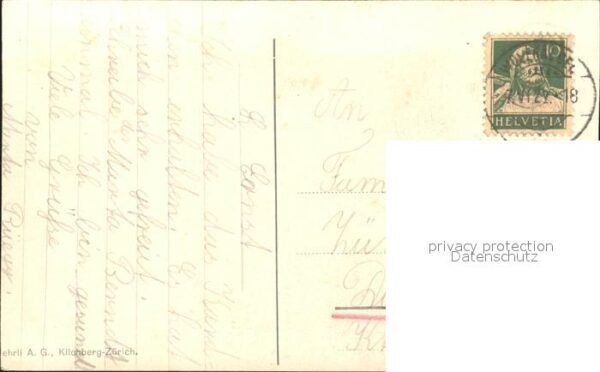 L. Ernst
Ich habe das Kärt-
chen erhalten. Es hat
mich sehr gefreut.
Schreibe Marta Berndt
einmal. Ich bin gesund
Viele Grüße
von
An
Fam
Zü
HELVETIA
10
18
privacy protection
Datenschutz
ehrli A. G., Kilchberg-Zürich.